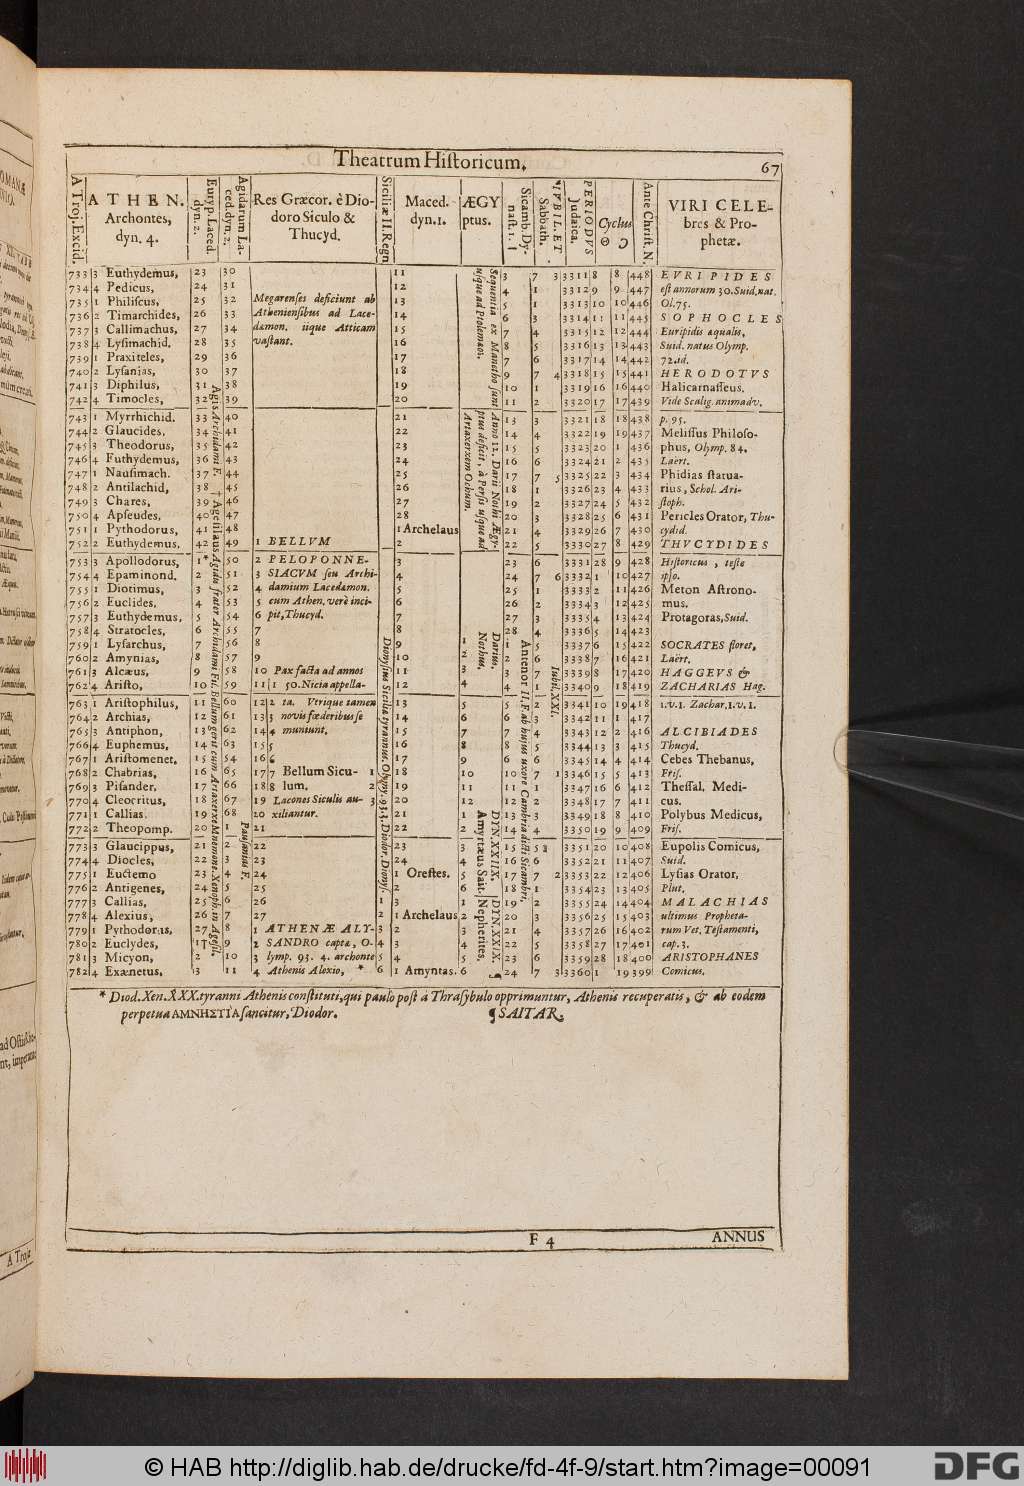 Theatrum Historicum. 67
A Troj. Excid. ATHEN. Archontes, dyn. 4. Euryp. Laced. dyn. 2. Agidarum Laced. dyn. 2. Res Græcor. è Diodoro Siculo & Thucyd. Siciliæ II. Regn. Maced. dyn. 1. ÆGYptus. Sicamb. Dynast. 1. IVBIL. ET Sabbath. PERIODVS Judaica. Cyclus ☉ ☽ Ante Christ. N. VIRI CELEbres & Prophetæ.
733 3 Euthydemus, 23 30 11 3 7 3 3311 8 8 448 EVRIPIDES
734 4 Pedicus, 24 31 12 4 1 3312 9 9 447 est annorum 30. Suid. nat.
735 1 Philiscus, 25 32 Megarenses deficiunt ab 13 5 1 3313 10 10 446 Ol. 75.
736 2 Timarchides, 26 33 Atheniensibus ad Lace- 14 6 3 3314 11 11 445 SOPHOCLES
737 3 Callimachus, 27 34 dæmon. iique Atticam 15 7 4 3315 12 12 444 Euripidis æqualis,
738 4 Lysimachid. 28 35 vastant. 16 8 5 3316 13 13 443 Suid. natus Olymp.
739 1 Praxiteles, 29 36 17 7 6 3317 14 14 442 72. id.
740 2 Lysanias, 30 37 18 9 7 4 3318 15 15 441 HERODOTVS
741 3 Diphilus, 31 38 19 10 1 3319 16 16 440 Halicarnasseus.
742 4 Timocles, 32 39 20 11 2 3320 17 17 439 Vide Scalig. animadv.
Sequentia ex Manetho sunt usque ad Ptolemæos.
743 1 Myrrhichid. 33 40 21 13 3 3321 18 18 438 p. 95.
744 2 Glaucides, 34 41 22 14 4 3322 19 19 437 Melissus Philoso-
745 3 Theodorus, 35 42 23 15 5 3323 20 1 436 phus, Olymp. 84.
746 4 Futhydemus, 36 43 24 16 6 3324 21 2 435 Laërt.
747 1 Nausimach. 37 44 25 17 7 5 3325 22 3 434 Phidias statua-
748 2 Antilachid, 38 45 26 18 1 3326 23 4 433 rius, Schol. Ari-
749 3 Chares, 39 46 27 19 2 3327 24 5 432 stoph.
750 4 Apseudes, 40 47 28 20 3 3328 25 6 431 Pericles Orator, Thu-
751 1 Pythodorus, 41 48 1 Archelaus 21 4 3329 26 7 430 cydid.
752 2 Euthydemus. 42 49 1 BELLVM 2 22 5 3330 27 8 429 THVCYDIDES
Anno 12. Darii Nothi Ægyptus deficit, à Persis usque ad Artaxerxem Ochum.
753 3 Apollodorus, 1* 50 2 PELOPONNE- 3 23 6 3331 28 9 428 Historicus, teste
754 4 Epaminond. 2 51 3 SIACVM seu Archi- 4 24 7 6 3332 1 10 427 ipso.
755 1 Diotimus, 3 52 4 damium Lacedæmon. 5 25 1 3333 2 11 426 Meton Astrono-
756 2 Euclides, 4 53 5 cum Athen. verè inci- 6 26 2 3334 3 12 425 mus.
757 3 Euthydemus, 5 54 6 pit, Thucyd. 7 27 3 3335 4 13 424 Protagoras, Suid.
758 4 Stratocles, 6 55 7 8 28 4 3336 5 14 423
759 1 Lysarchus, 7 56 8 9 1 1 5 3337 6 15 422 SOCRATES floret,
760 2 Amynias, 8 57 9 10 2 2 6 3338 7 16 421 Laërt.
761 3 Alcæus, 9 58 10 Pax facta ad annos 11 3 3 7 3339 8 17 420 HAGGEVS &
762 4 Aristo, 10 59 11 1 50. Nicia appella- 12 4 4 1 3340 9 18 419 ZACHARIAS Hag.
Darius Nothus,
763 1 Aristophilus, 11 60 12 2 ta. Vtrique tamen 13 5 5 2 3341 10 19 418 1. v. 1. Zachar. 1. v. 1.
764 2 Archias, 12 61 13 3 novis fœderibus se 14 6 6 3 3342 11 1 417
765 3 Antiphon, 13 62 14 4 muniunt. 15 7 7 4 3343 12 2 416 ALCIBIADES
766 4 Euphemus, 14 63 15 5 16 8 8 5 3344 13 3 415 Thucyd.
767 1 Aristomenet. 15 54 16 6 17 9 6 6 3345 14 4 414 Cebes Thebanus,
768 2 Chabrias, 16 65 17 7 Bellum Sicu- 1 18 10 10 7 1 3346 15 5 413 Fris.
769 3 Pisander, 17 66 18 8 lum. 2 19 11 11 1 3347 16 6 412 Thessal. Medi-
770 4 Cleocritus, 18 67 19 Lacones Siculis au- 3 20 12 12 2 3348 17 7 411 cus.
771 1 Callias. 19 68 20 xiliantur. 21 1 13 3 3349 18 8 410 Polybus Medicus,
772 2 Theopomp. 20 1 21 22 2 14 4 3350 19 9 409 Fris.
773 3 Glaucippus, 21 2 22 23 3 15 5 3351 20 10 408 Eupolis Comicus,
774 4 Diocles, 22 3 23 24 4 16 6 3352 21 11 407 Suid.
775 1 Euctemo 23 4 24 1 Orestes. 5 17 7 2 3353 22 12 406 Lysias Orator,
776 2 Antigenes, 24 5 25 2 6 18 1 3354 23 13 405 Plut.
777 3 Callias, 25 6 26 1 3 1 19 2 3355 24 14 404 MALACHIAS
778 4 Alexius, 26 7 27 2 1 Archelaus 2 20 3 3356 25 15 403 ultimus Propheta-
779 1 Pythodorus, 27 8 1 ATHENÆ ALY- 3 2 3 21 4 3357 26 16 402 rum Vet. Testamenti,
780 2 Euclydes, 1† 9 2 SANDRO captæ, O- 4 3 4 22 5 3358 27 17 401 cap. 3.
781 3 Micyon, 2 10 3 lymp. 93. 4. archonte 5 4 5 23 6 3359 28 18 400 ARISTOPHANES
782 4 Exænetus, 3 11 4 Athenis Alexio, * 6 1 Amyntas. 6 24 7 3 3360 1 19 399 Comicus.
Agis Archidami F. † Agesilaus Agidis frater Archidami Fil. Bellum gerit cum Artaxerxe Mnemone. Xenoph. in Agesil.
Pausanias F.
Dionysius Siciliæ tyrannus. Obsyg. 93. 3. Diodor. Dionys.
DYN. XXIIX. Amyrtæus Sait.
DYN. XXIX. Nepherites, ¶
Antenor II. F. ab hujus uxore Cambria dicti Sicambri,
Iubil. XXI.
* Diod. Xen. XXX. tyranni Athenis constituti, qui paulò post à Thrasybulo opprimuntur, Athenis recuperatis, & ab eodem
perpetua ΑΜΝΗΣΤΙΑ sancitur, Diodor. ¶ SAITAR.
F 4 ANNUS
© HAB http://diglib.hab.de/drucke/fd-4f-9/start.htm?image=00091
DFG